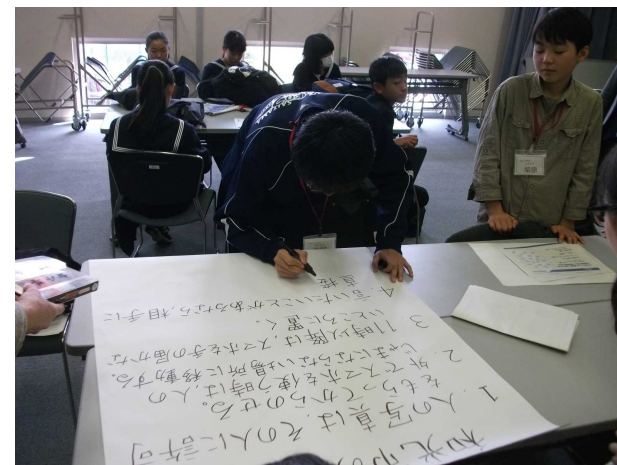 和光市の
1. 人の写真は、その人に許可
をもらってからのせる。
2. 外でスマホを使う時は、人の
じゃまにならない場所に移動する。
3 11時以降は、スマホを手の届かな
いところに置く。
4. 言いたいことがあるなら、相手に
直接